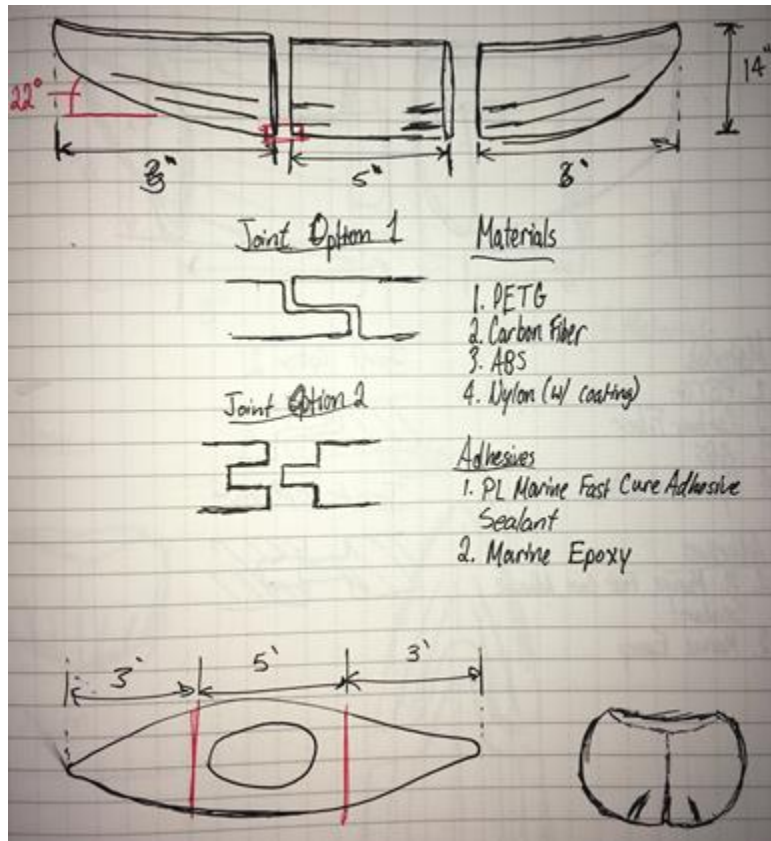 14"
22°
3'
5'
3'
Joint Option 1
Materials
1. PETG
2. Carbon Fiber
3. ABS
4. Nylon (w/ coating)
Joint Option 2
Adhesives
1. PL Marine Fast Cure Adhesive
Sealant
2. Marine Epoxy
3'
5'
3'